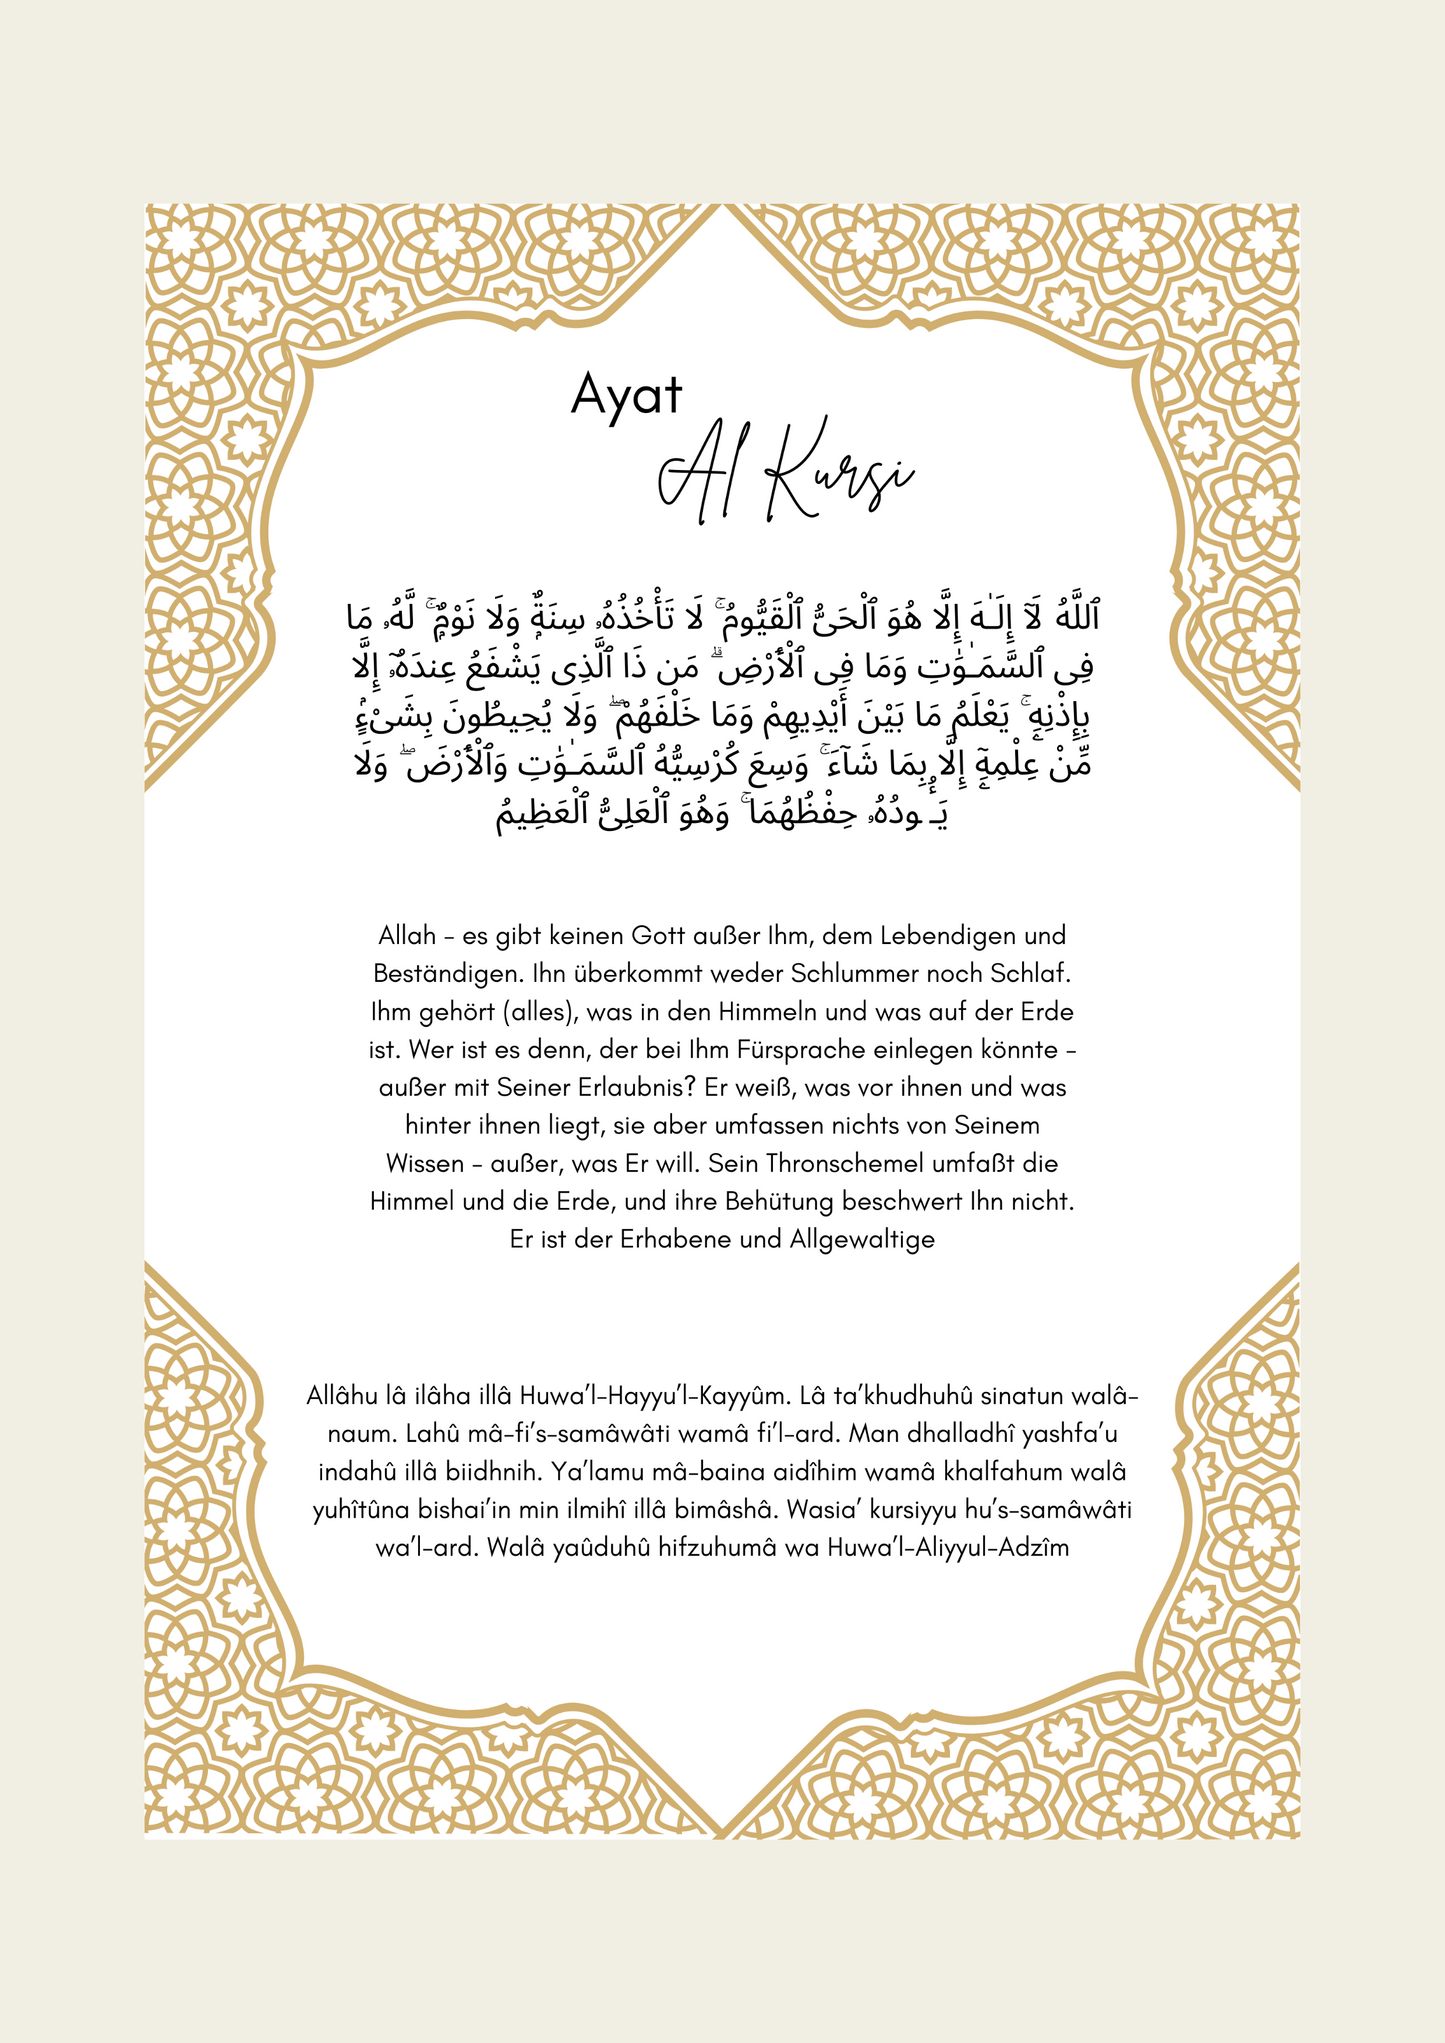 Ayat
Al Kursi
ٱللَّهُ لَآ إِلَـٰهَ إِلَّا هُوَ ٱلْحَىُّ ٱلْقَيُّومُ ۚ لَا تَأْخُذُهُۥ سِنَةٌۭ وَلَا نَوْمٌۭ ۚ لَّهُۥ مَا
فِى ٱلسَّمَـٰوَٰتِ وَمَا فِى ٱلْأَرْضِ ۗ مَن ذَا ٱلَّذِى يَشْفَعُ عِندَهُۥٓ إِلَّا
بِإِذْنِهِۦ ۚ يَعْلَمُ مَا بَيْنَ أَيْدِيهِمْ وَمَا خَلْفَهُمْ ۖ وَلَا يُحِيطُونَ بِشَىْءٍۢ
مِّنْ عِلْمِهِۦٓ إِلَّا بِمَا شَآءَ ۚ وَسِعَ كُرْسِيُّهُ ٱلسَّمَـٰوَٰتِ وَٱلْأَرْضَ ۖ وَلَا
يَـُٔودُهُۥ حِفْظُهُمَا ۚ وَهُوَ ٱلْعَلِىُّ ٱلْعَظِيمُ
Allah – es gibt keinen Gott außer Ihm, dem Lebendigen und
Beständigen. Ihn überkommt weder Schlummer noch Schlaf.
Ihm gehört (alles), was in den Himmeln und was auf der Erde
ist. Wer ist es denn, der bei Ihm Fürsprache einlegen könnte –
außer mit Seiner Erlaubnis? Er weiß, was vor ihnen und was
hinter ihnen liegt, sie aber umfassen nichts von Seinem
Wissen – außer, was Er will. Sein Thronschemel umfaßt die
Himmel und die Erde, und ihre Behütung beschwert Ihn nicht.
Er ist der Erhabene und Allgewaltige
Allâhu lâ ilâha illâ Huwa’l-Hayyu’l-Kayyûm. Lâ ta’khudhuhû sinatun walâ-
naum. Lahû mâ-fi’s-samâwâti wamâ fi’l-ard. Man dhalladhî yashfa’u
indahû illâ biidhnih. Ya’lamu mâ-baina aidîhim wamâ khalfahum walâ
yuhîtûna bishai’in min ilmihî illâ bimâshâ. Wasia’ kursiyyu hu’s-samâwâti
wa’l-ard. Walâ yaûduhû hifzuhumâ wa Huwa’l-Aliyyul-Adzîm